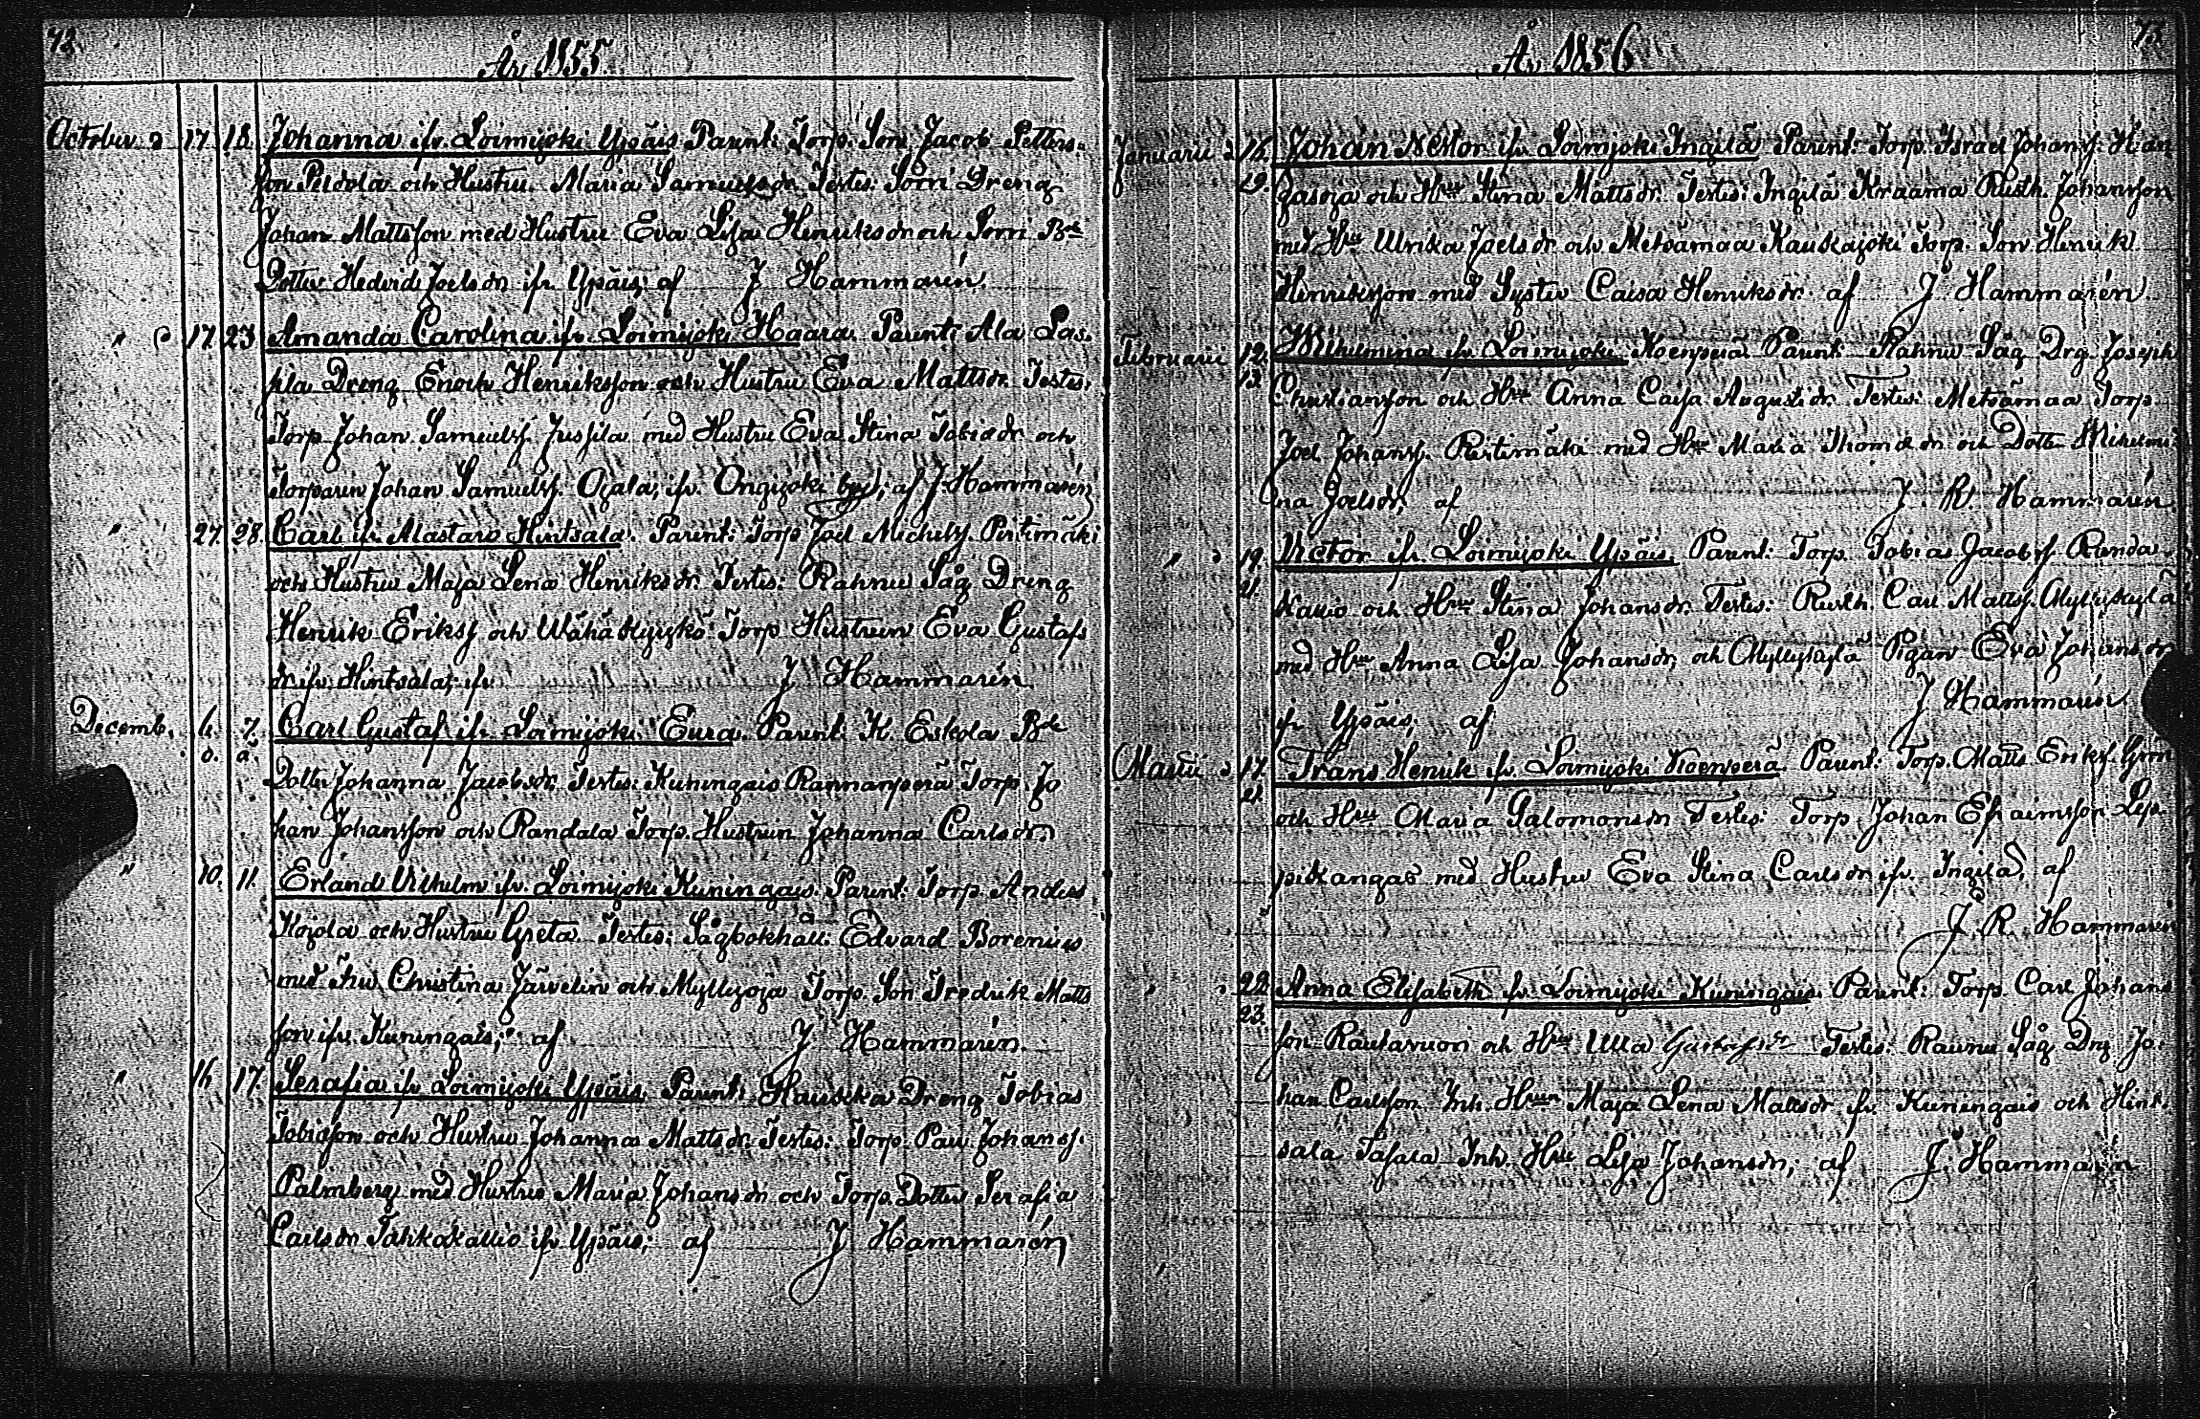 72.
År 1855.
October d 17. 18. Johanna ifr. Loimijoki Ypäis Parent: Torp. Son Jacob Petters-
son Peldola och Hustru Maria Samuelsdr. Testes: Sorri Dreng
Johan Mattsson med Hustru Eva Lisa Henriksdr och Sorri Bde
Dotter Hedvid Joelsdr ifr. Ypäis; af J Hammarén.
" d 17. 23. Amanda Carolina ifr. Loimijoki Haara. Parent: Ala Las-
sila Dreng Enoch Henriksson och Hustru Eva Mattsdr. Testes:
Torp Johan Samuelss. Jussila med Hustru Eva Stina Tobiasdr och
Torparen Johan Samuelss. Ojala, ifr. Ongijoki by; af J. Hammarén
" 27. 28. Carl ifr. Alastaro Hintsala. Parent: Torp Joel Michelss. Pirtimäki
och Hustru Maja Lena Henriksdr. Testes: Rahnu Såg Dreng
Henrik Erikss och Wähä Kyrykö Torp Hustrun Eva Gustafs
dr ifr. Hintsala; ifr J Hammarén
Decemb. 6. 7. Carl Gustaf ifr. Loimijoki Eura. Parent: K. Eskola Bde
o. a.
Dotter Johanna Jacobsdr, Testes: Kuningais Rannanperä Torp. Jo
han Johansson och Randala Torp. Hustrun Johanna Carlsdr.
" 10. 11. Erland Vilhelm ifr. Loimijoki Kuningais. Parent: Torp. Anders
Kojola och Hustru Greta. Testes: Sågbokhåll: Edvard Borenius
med Fru Christina Järvelin och Myllyoja Torp. Son Fredrik Matts
son ifr. Kuningais; af J Hammarén.
" 16 17. Serafia ifr. Loimijoki Ypäis. Parent: Hauska Dreng Tobias
Tobiasson och Hustru Johanna Mattsdr. Testes: Torp. Paul Johanss.
Palmberg med Hustru Maria Johansdr och Torp. Dotter Serafia
Carlsdr Tahkakallio ifr Ypäis; af J Hammarén
73.
År 1856
Januarii d 16. Johan Nestor ifr. Loimijoki Ingilä Parent: Torp. Israel Johanss. Hän
29. gasoja och Hru Stina Mattsdr. Testes: Ingilä Kraama Rusth. Johansson
med Hru Ulrika Joelsdr. och Metsämaa Kauskajoki Torp. Son Henrik
Henriksson med Syster Caisa Henriksdr. af J Hammarén
Februarii 12. Wilhelmina ifr. Loimijoki Koenperä Parent: Rahnu Såg Drg. Joseph
13. Christiansson och Hru Anna Caisa Augustidr. Testes: Metsämaa Torp.
Joel Johanss. Pirtimäki med Hru Maria Thomasdr och Dotter Wilhelmi-
na Joelsdr, af J R. Hammarén
" d 19. Victor ifr. Loimijoki Ypäis. Parent: Torp. Tobias Jacobss Randa
21. kallio och Hru Stina Johansdr. Testes: Rusth. Carl Mattss. Myllykylä
med Hru Anna Lisa Johansdr, och Myllykylä Pigan Eva Johansdr
ifr Ypäis; af J Hammarén
Martii d 17. Frans Henrik ifr. Loimijoki Koenperä. Parent: Torp. Matts Erikss. Grön
21. och Hru Maria Salomonsdr Testes: Torp. Johan Efraimsson Lep-
pikangas med Hustru Eva Stina Carlsdr ifr. Ingilä, af
J. R. Hammarén
" " 22. Anna Elisabeth ifr. Loimijoki Kuningais. Parent: Torp. Carl Johans
23. son Rautavuori och Hru Ulla Gustafsdr Testes: Raunu Såg Drg Jo-
han Carlsson Inh. Hrun Maja Lena Mattsdr ifr. Kuningais och Hint-
sala Tasala Inh. Hru Lisa Johansdr; af J. Hammarén